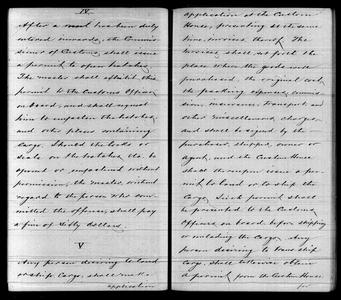 IV
After a vessel has been duly
entered inwards, the Commis-
sioner of Customs, shall issue
a permit to open hatches.
The master shall exhibit this
permit to the Customs Officer
on board, and shall request
him to unfasten the hatches,
and other places containing
Cargo. Should the locks or
seals on the hatches, etc. be
opened or unfastened without
permission, the master, without
regard to the person who com-
mitted the offence, shall pay
a fine of sixty dollars.
V
Any person desiring to land
or ship Cargo, shall make
application
application at the Custom
House, presenting at the same
time, invoices thereof. The
invoices shall set forth the
place where the goods were
purchased, the original cost,
the packing expenses, commis-
sion, insurance, transport and
other miscellaneous charges,
and shall be signed by the
purchaser, shipper, owner or
agent, and the Custom House
shall thereupon issue a per-
mit to land or to ship the
Cargo. Such permit shall
be presented to the Customs
Officer, on board before shipping
or unlading the Cargo. Any
person desiring to tranship
Cargo, shall likewise obtain
a permit from the Custom House